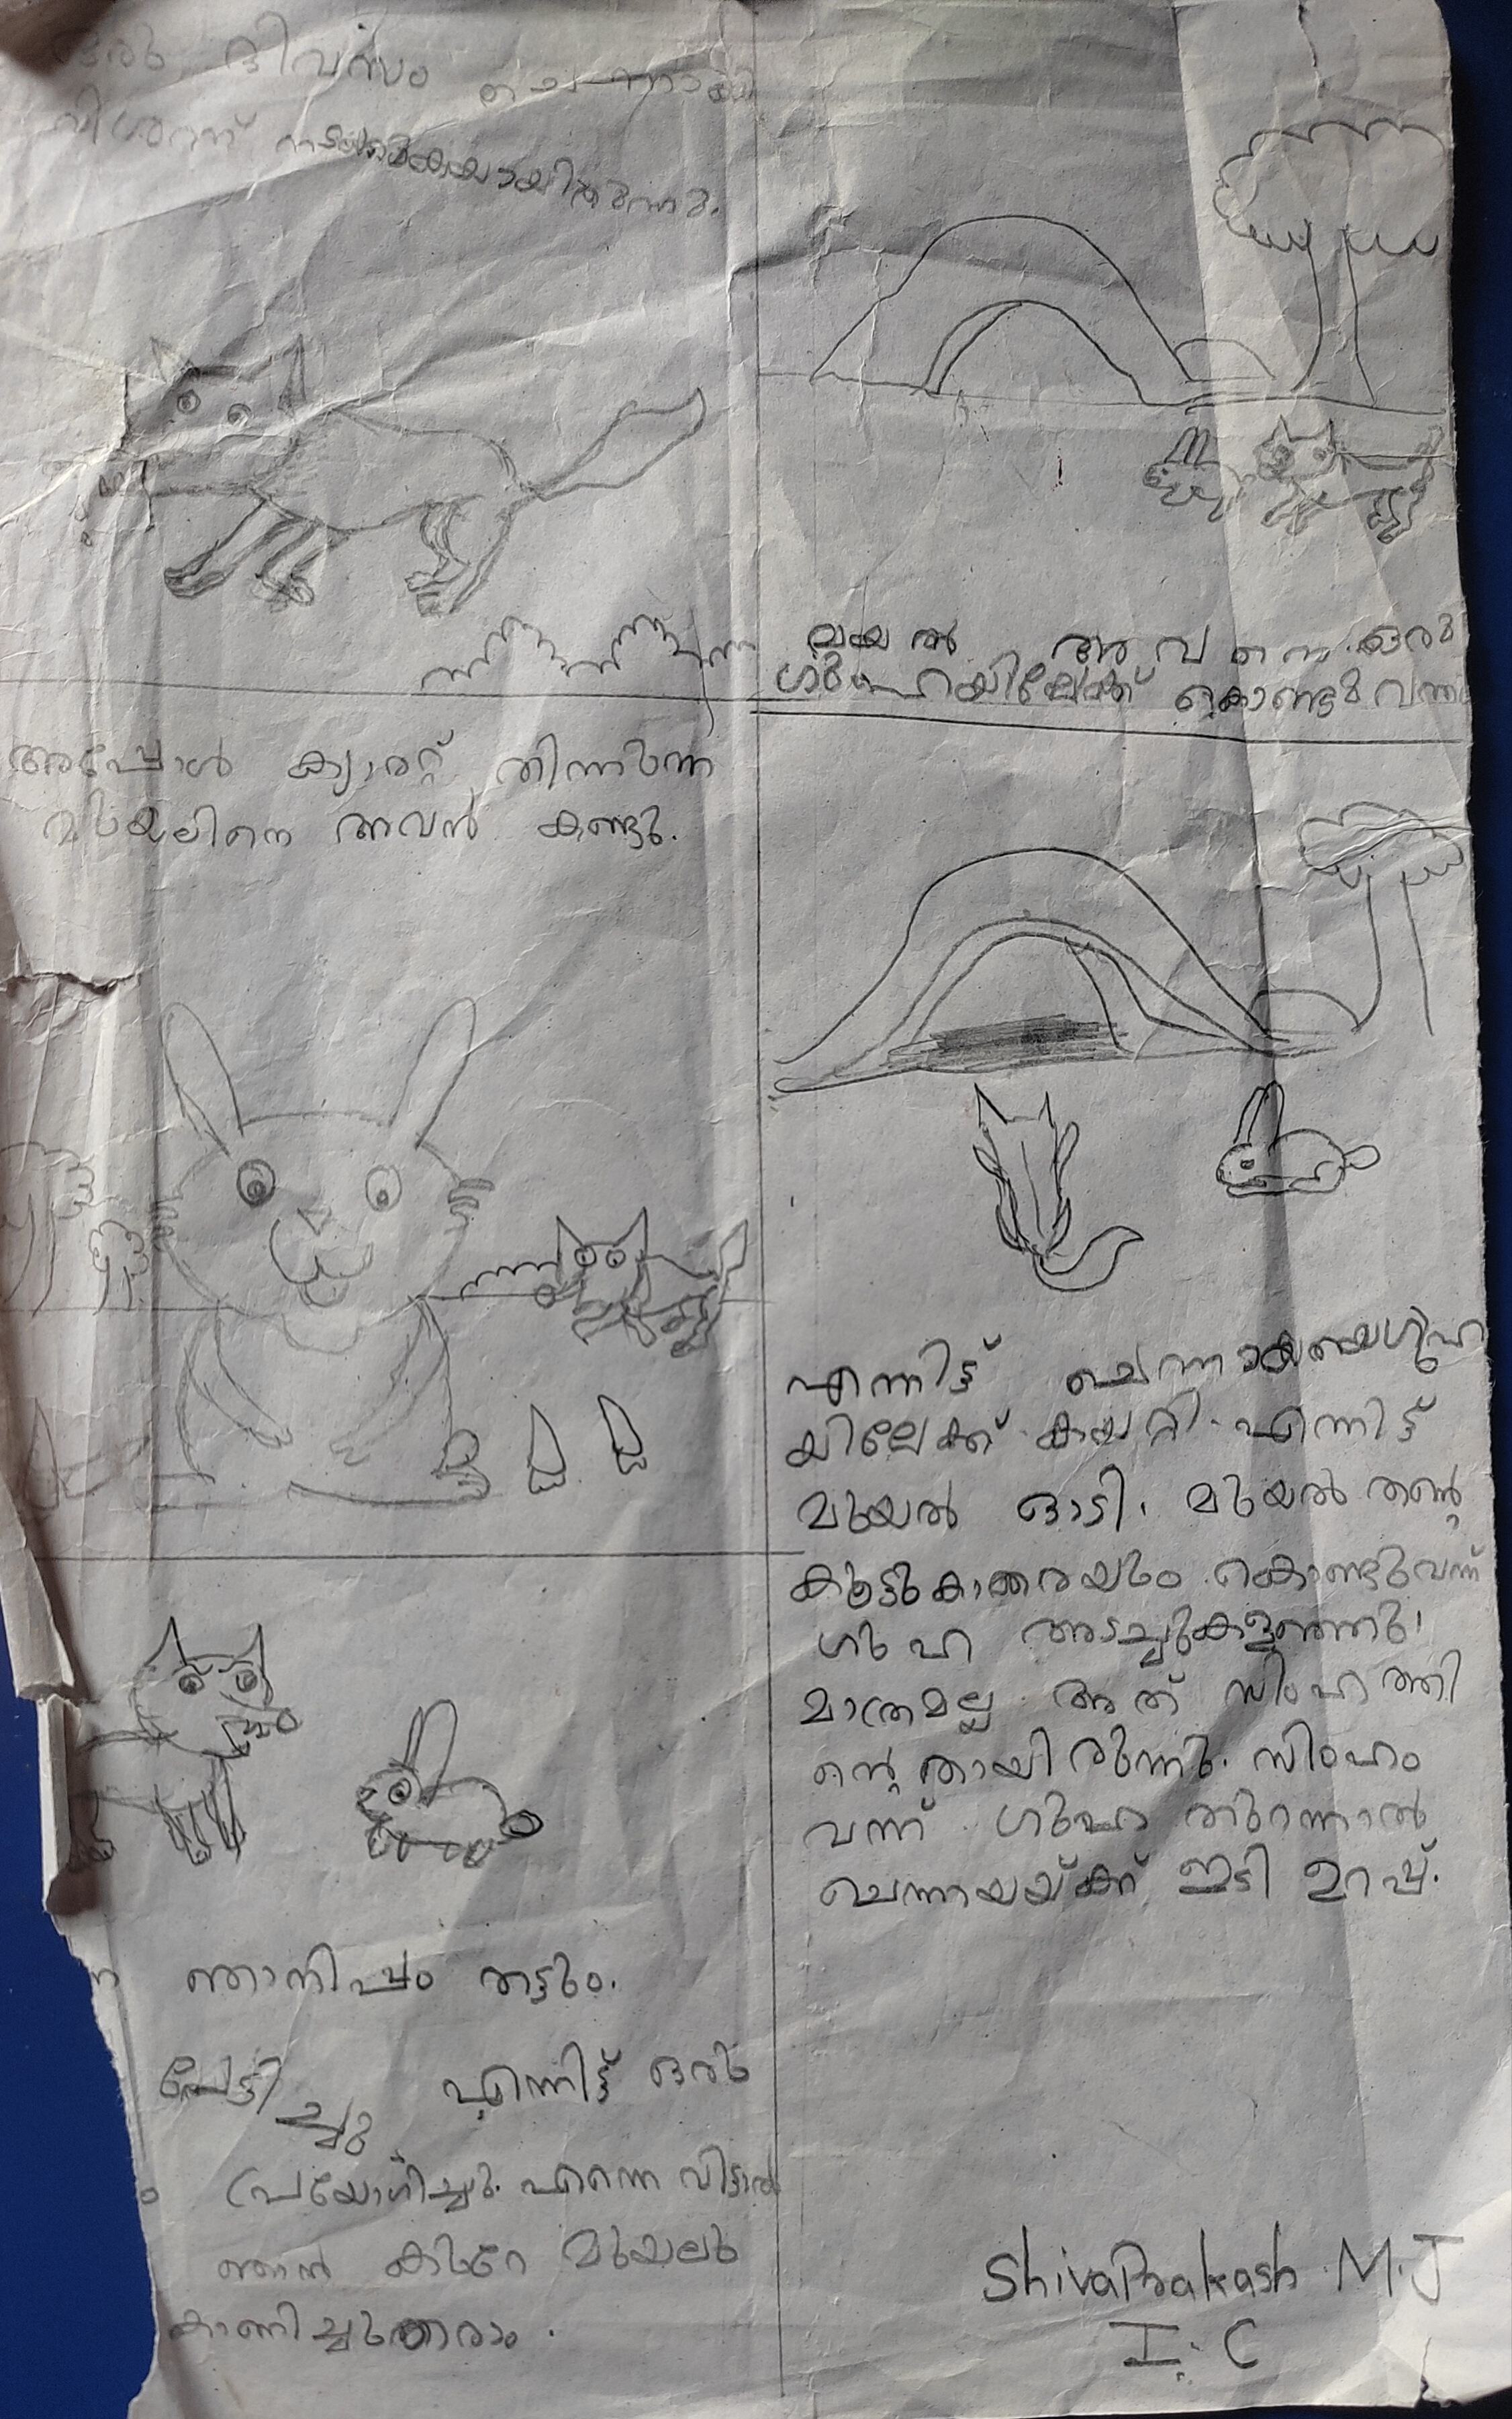 ഒരു ദിവസം ചെന്നായ
വിശന്ന് നടക്കുകയായിരുന്നു.
അപ്പോൾ ക്യാരറ്റ് തിന്നുന്ന
മുയലിനെ അവൻ കണ്ടു.
ഞാനിപ്പം തട്ടും.
പേടിച്ചു എന്നിട്ട് ഒരു
പ്രയോഗിച്ചു. എന്നെ വിട്ടാൽ
ഞാൻ കുറെ മുയലു
കാണിച്ചുതരാം.
മുയൽ അവനെ ഒരു
ഗുഹയിലേക്ക് കൊണ്ടുവന്നു
എന്നിട്ട് ചെന്നായ ഗുഹ
യിലേക്ക് കയറ്റി. എന്നിട്ട്
മുയൽ ഓടി. മുയൽ തന്റെ
കൂട്ടുകാരെയും കൊണ്ടുവന്ന്
ഗുഹ അടച്ചുകളഞ്ഞു.
മാത്രമല്ല അത് സിംഹത്തി
ന്റെതായിരുന്നു. സിംഹം
വന്ന് ഗുഹ തുറന്നാൽ
ചെന്നായയ്ക്ക് ഇടി ഉറപ്പ്.
ShivaPrakash M.J
I. C